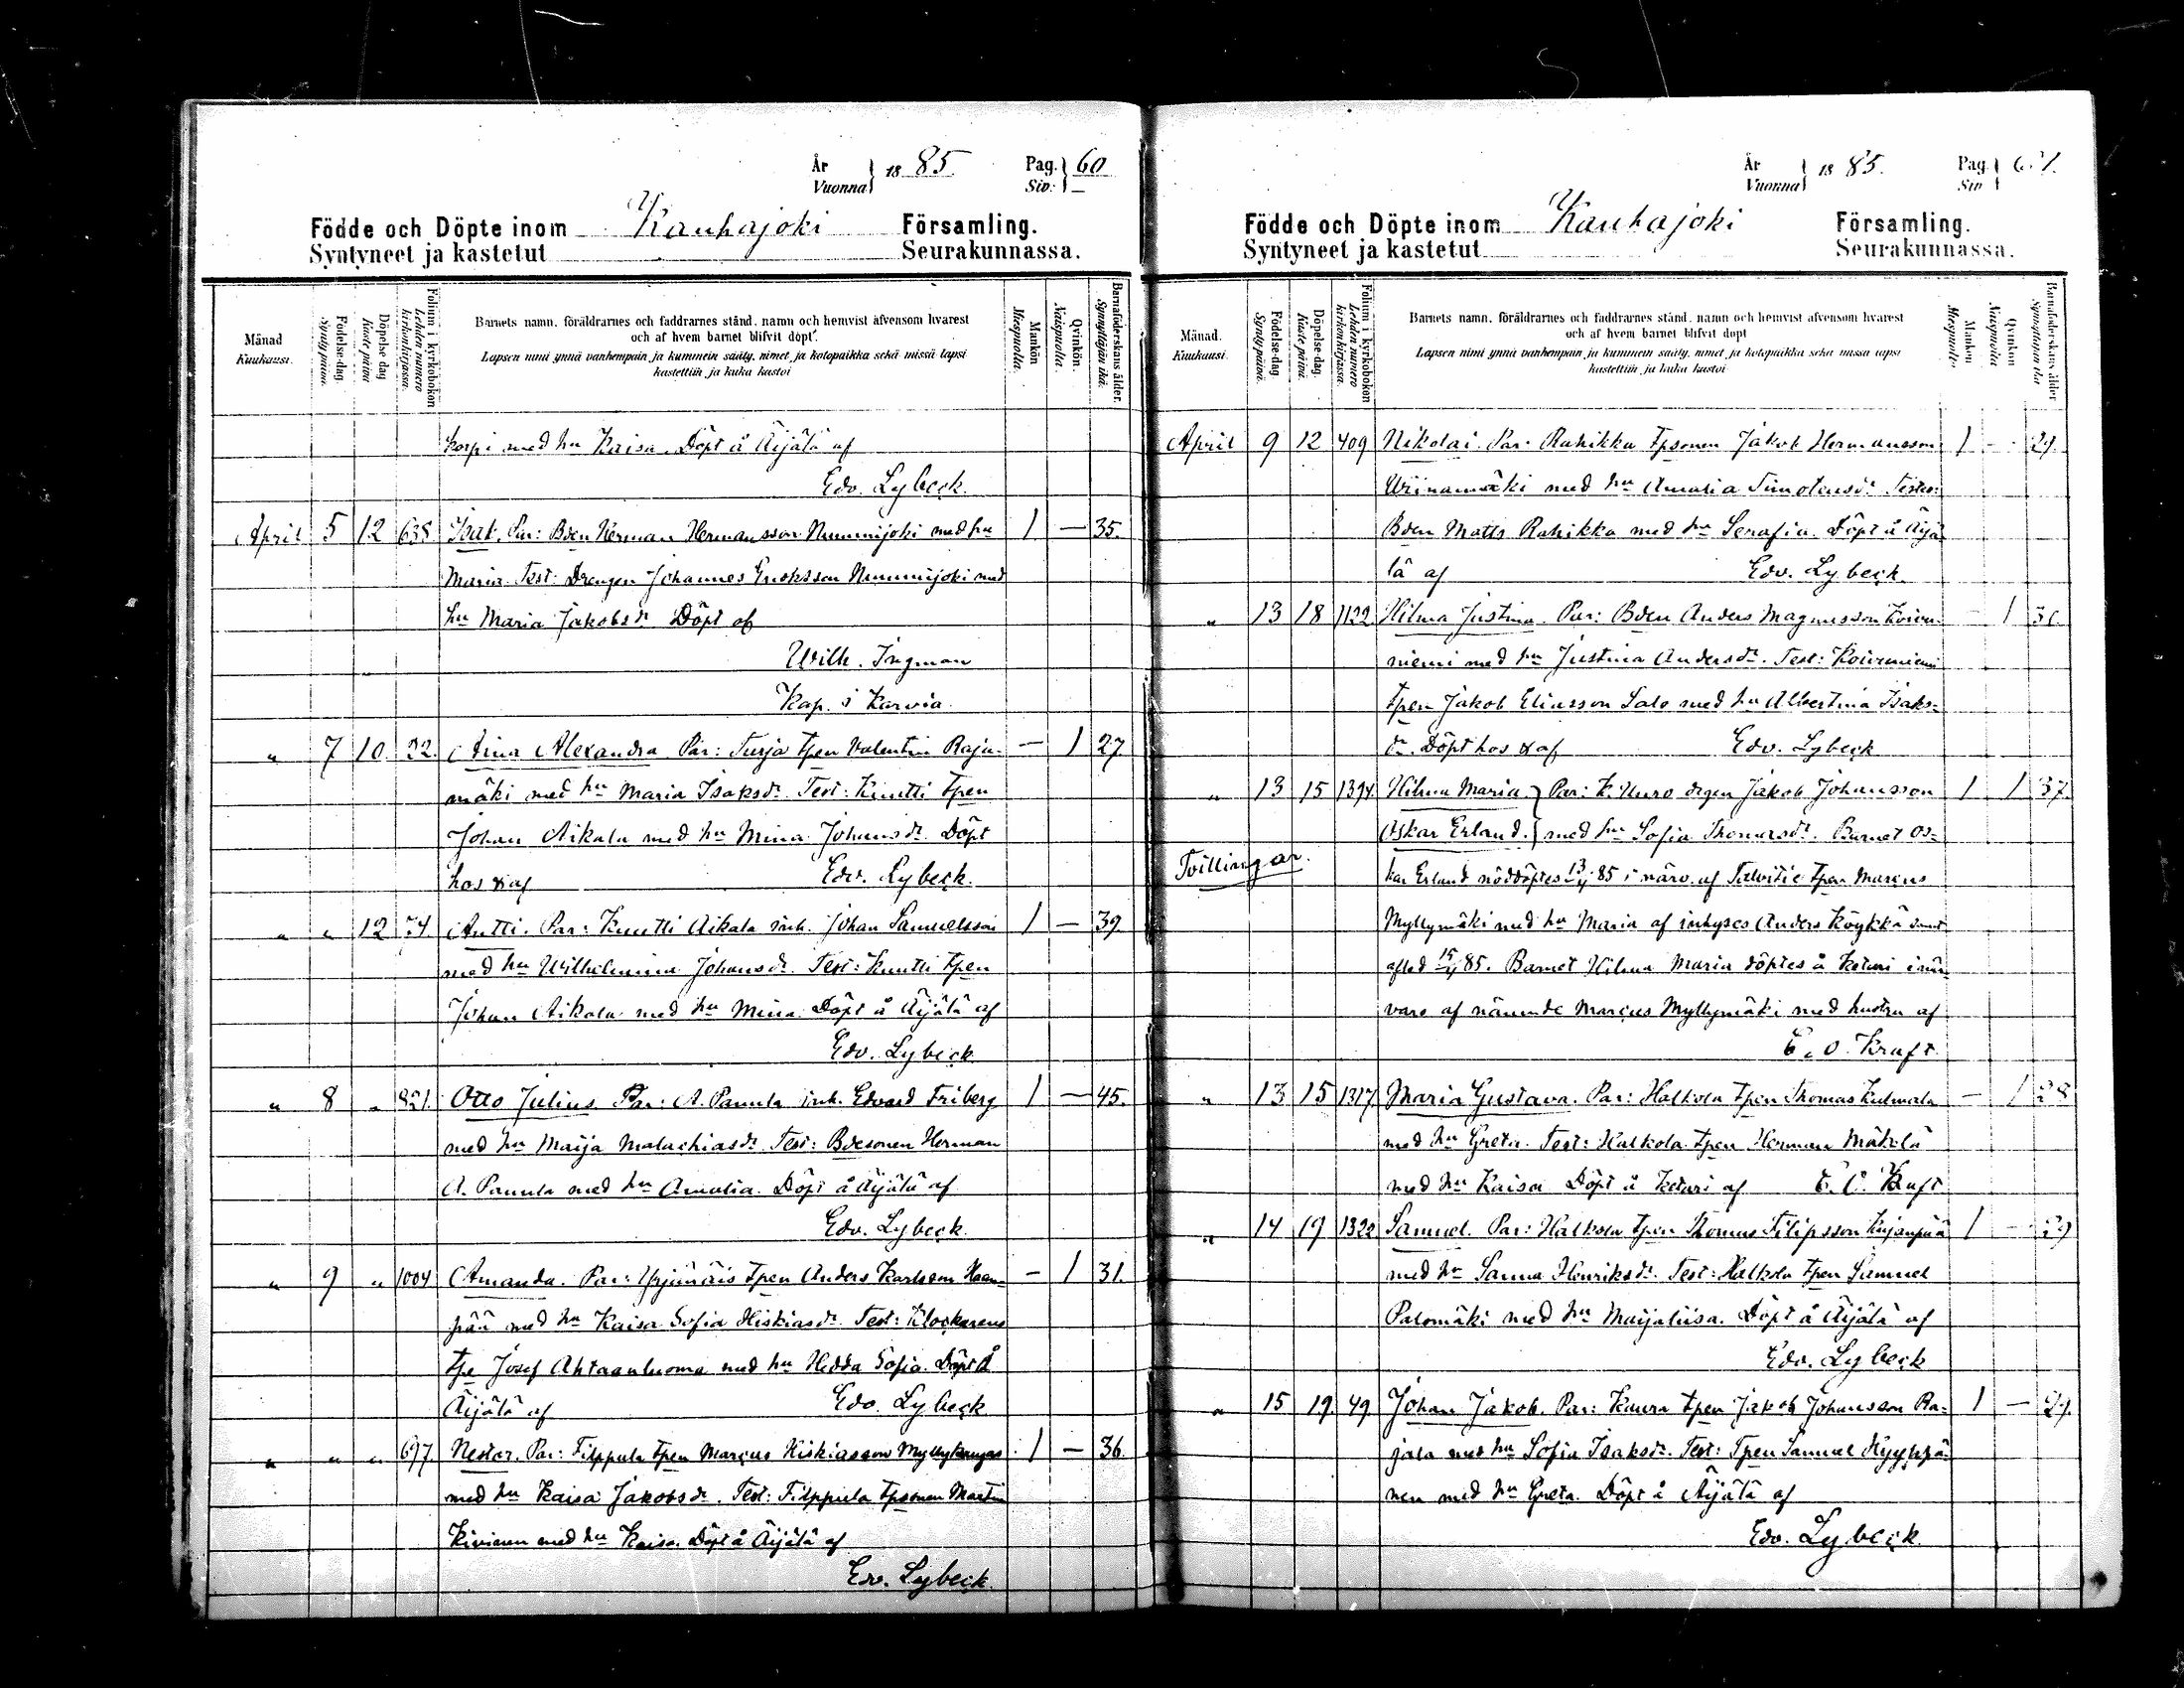 År
Vuonna } 18 85. Pag. } 60
Siv.
Födde och Döpte inom Kauhajoki Församling.
Syntyneet ja kastetut Seurakunnassa.
Månad
Kuukausi.
Födelse-dag.
Syntypäivä.
Döpelse dag
Kaste päivä
Folium i kyrkoboken
Lehden numero
kirkonkirjassa.
Barnets namn, föräldrarnes och faddrarnes stånd, namn och hemvist äfvensom hvarest
och af hvem barnet blifvit döpt.
Lapsen nimi ynnä vanhempain ja kummein sääty, nimet ja kotopaikka sekä missä lapsi
kastettiin ja kuka kastoi
Mankön
Miespuolia.
Qvinkön.
Naispuolia.
Barnaföderskans ålder.
Synnyttäjän ikä.
korpi med hu Kaisa. Döpt å Äijälä af
Edv. Lybeck.
April 5 12 638 Isak. Par: Bden Herman Hermansson Nummijoki med hu 1 — 35.
Maria. Test: Drengen Johannes Eriksson Nummijoki med
hu Maria Jakobsdr. Döpt af
Wilh. Ingman
Kap. i Karvia.
" 7 10 22. Aina Alexandra. Par: Turja tpen Valentin Raja- — 1 27.
mäki med hu Maria Isaksdr. Test: Knutti tpen
Johan Aikala med hu Mina Johansdr. Döpt
hos & af Edv. Lybeck.
" " 12 74 Antti. Par: Knutti Aikala inh. Johan Samuelsson 1 — 39.
med hu Wilhelmina Johansdr. Test: Knutti tpen
Johan Aikala med hu Mina. Döpt å Äijälä af
Edv. Lybeck
" 8 " 821. Otto Julius. Par: A. Panula inh. Edvard Friberg 1 — 45.
med hu Maija Malachiasdr. Test: Bdesonen Herman
A. Panula med hu Amalia. Döpt å Äijälä af
Edv. Lybeck.
" 9 " 1004 Amanda. Par: Yrjänäis tpen Anders Karlsson Haan- — 1 31.
pää med hu Kaisa Sofia Hiskiasdr. Test: Klockarens
tpe Josef Ahtaanluoma med hu Hedda Sofia. Döpt å
Äijälä af Edv. Lybeck
" " " 697. Nestor. Par: Filppula tpen Marcus Hiskiasson Myllykangas 1 — 36.
med hu Kaisa Jakobsdr. Test: Filppula tpsonen Martin
Kivinen med hu Kaisa. Döpt å Äijälä af
Edv. Lybeck.
År
Vuonna } 18 85. Pag. } 61.
Siv
Födde och Döpte inom Kauhajoki Församling.
Syntyneet ja kastetut Seurakunnassa.
Månad.
Kuukausi.
Födelse-dag
Syntypäivä.
Döpelse-dag.
Kaste päivä.
Folium i kyrkoboken
Lehden numero
kirkonkirjassa.
Barnets namn, föräldrarnes och faddrarnes stånd, namn och hemvist äfvensom hvarest
och af hvem barnet blifvit döpt
Lapsen nimi ynnä vanhempain ja kummein sääty, nimet ja kotopaikka sekä missä lapsi
kastettiin ja kuka kastoi
Mankön
Miespuolia.
Qvinkön
Naispuolia
Barnaföderskans ålder
Synnyttäjän ikä
April 9 12 409 Nikolai. Par: Rahikka tpsonen Jakob Hermansson 1 - 29.
Wiinamäki med hu Amalia Timoteusdr. Test:
Bden Matts Rahikka med hu Serafia. Döpt å Äijä-
lä af Edv. Lybeck.
" 13 18 1122 Hilma Justina. Par: Bden Anders Magnusson Koivu- — 1
niemi med hu Justina Andersdr. Test: Koivuniemi
tpen Jakob Eliasson Salo med hu Albertina Isaks-
dr. Döpt hos & af Edv. Lybeck
" 13 15 1394. Hilma Maria } Par: K. Uuro drgen Jakob Johansson 1 1 37.
Oskar Erland. } med hu Sofia Thomasdr. Barnet Os-
Tvillingar.
kar Erland nöddöptes 13/4 85 i närv. af Talvitie tpen Marcus
Myllymäki med hu Maria af inhyses Anders Köykkä samt
afled 15/4 85. Barnet Hilma Maria döptes å Keturi i när-
varo af nämnde Marcus Myllymäki med hustru af
C. O. Kraft.
" 13 15 1317 Maria Gustava. Par: Halkola tpen Thomas Kulmala — 1 28
med hu Greta. Test: Halkola tpen Herman Mäkelä
med hu Kaisa Döpt å Keturi af C. O. Kraft
" 14 19 1322 Samuel. Par: Halkola tpen Thomas Filipsson Kujanpää 1 - 29
med hu Sanna Henriksdr. Test: Halkola tpen Samuel
Palomäki med hu Maijaliisa. Döpt å Äijälä af
Edv. Lybeck
" 15 19. 49. Johan Jakob. Par: Kaura tpen Jakob Johansson Ra- 1 — 29.
jala med hu Sofia Isaksdr. Test: Tpen Samuel Hyyppä-
nen med hu Greta. Döpt å Äijälä af
Edv. Lybeck.